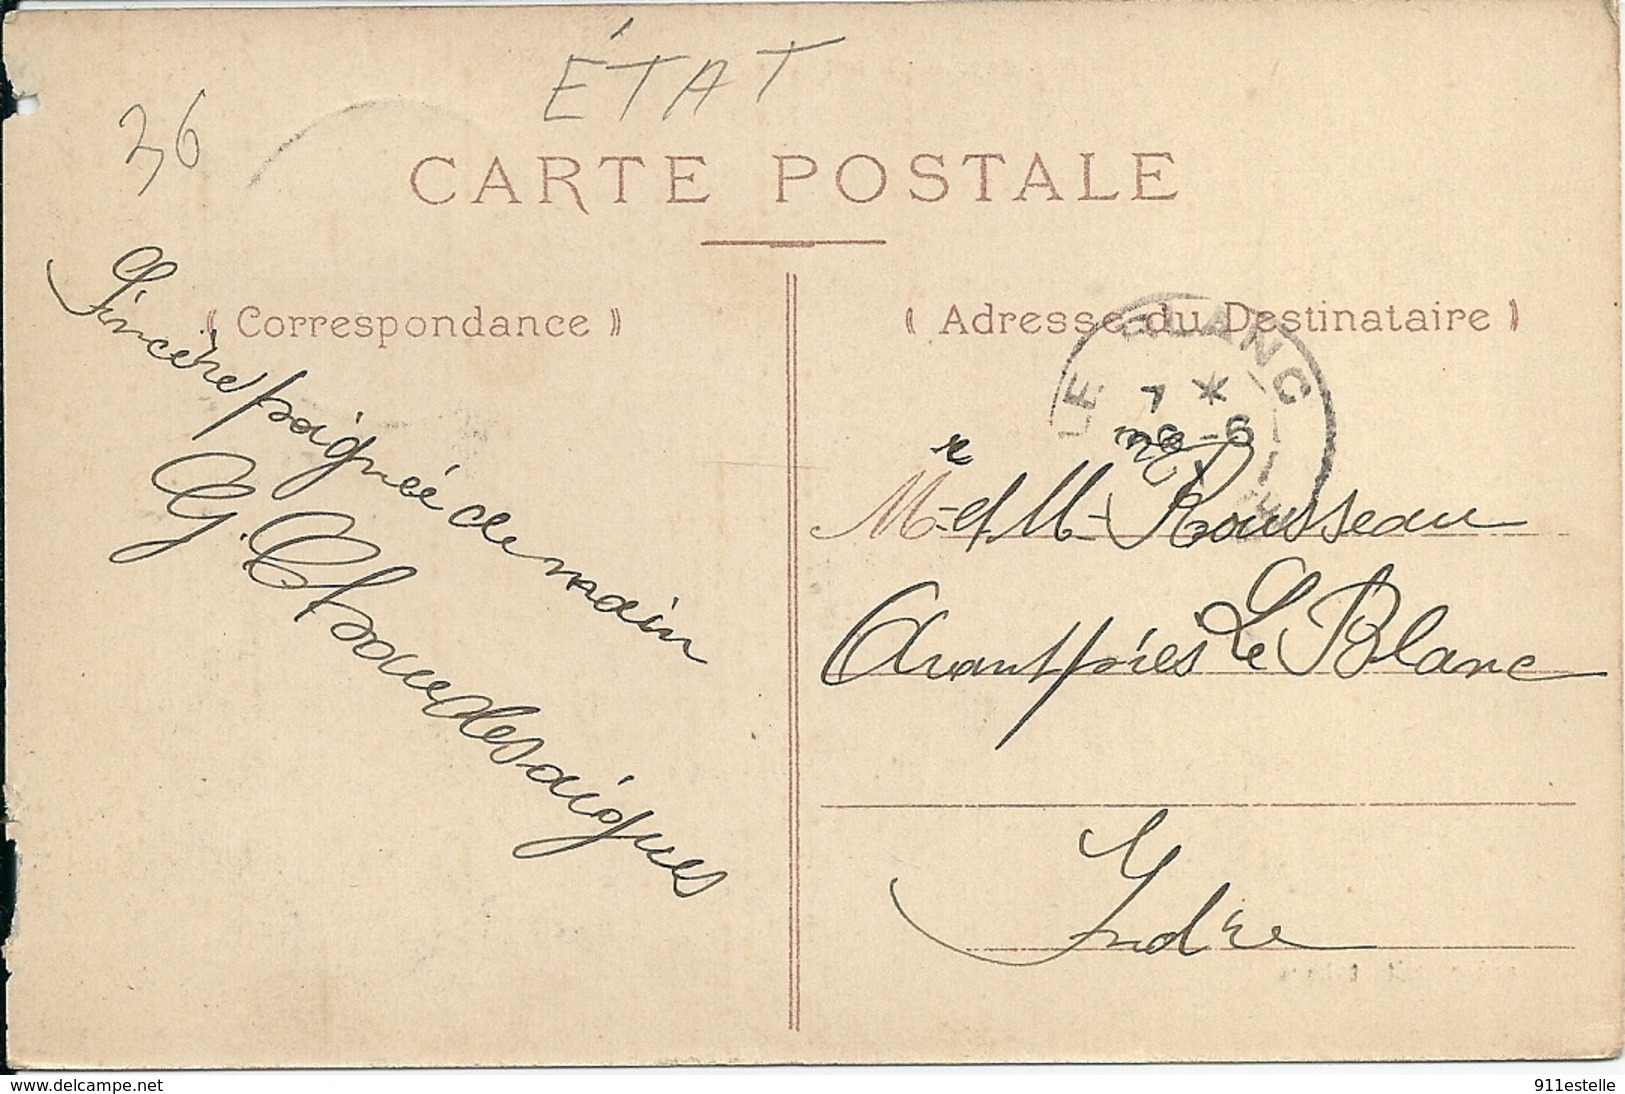 36
ÉTAT
CARTE POSTALE
« Correspondance »
Sincère poignée de main
G. Chaudesaigues
« Adresse du Destinataire »
LE BLANC
7 *
-6
Mr et Mme Rousseau
Avant près Le Blanc
Indre
Delcampe.net
911estelle